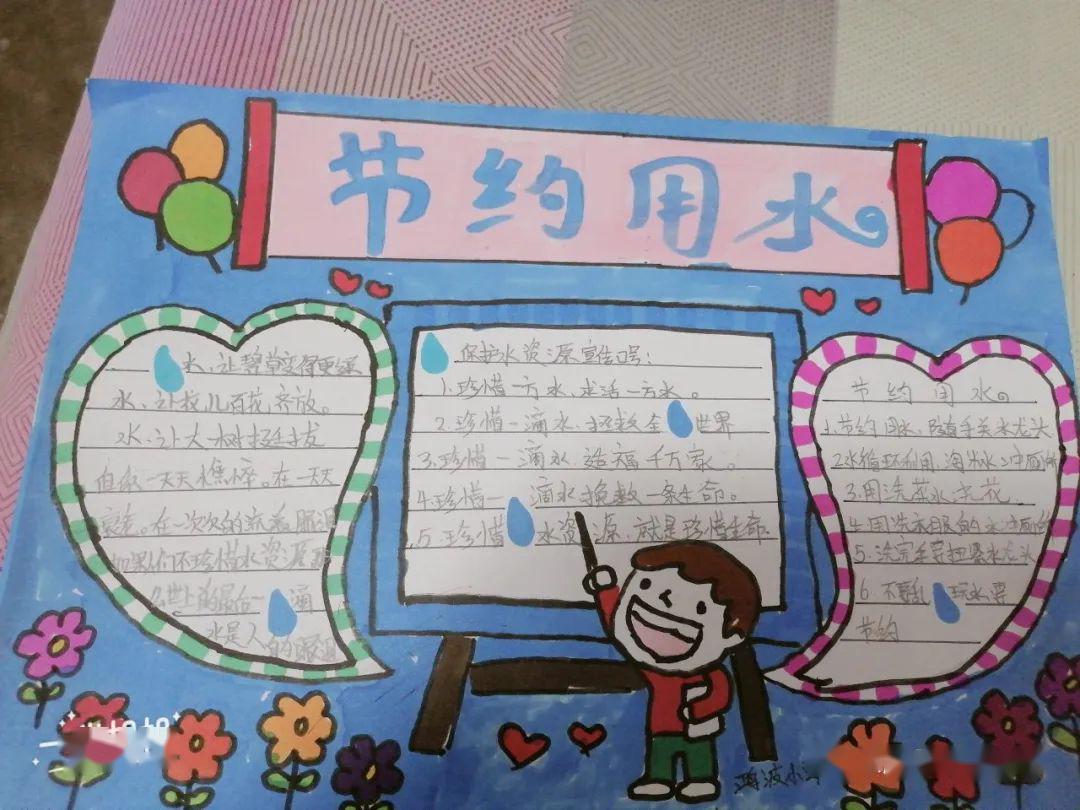 节约用水
水、让碧草变得更绿
水、让花儿百花齐放。
水、让大树挺拔
但你一天天憔悴。在一天天
衰老。在一次次的
如果人们不珍惜水资源
世上的最后一滴
水是人的眼泪
保护水资源宣传口号:
1.珍惜一方水,
2.珍惜一滴水、拯救全世界
3.珍惜一滴水、造福千万家。
4.珍惜一滴水挽救一条生命。
5.珍惜水资源、就是珍惜生命
节约用水
1.节约用水,随手关水龙头
2水循环利用,淘米水冲厕所
3.用洗菜水浇花
4.用洗衣服的水冲厕所
5.洗完手要扭紧水龙头
6.不要乱玩水要
节约